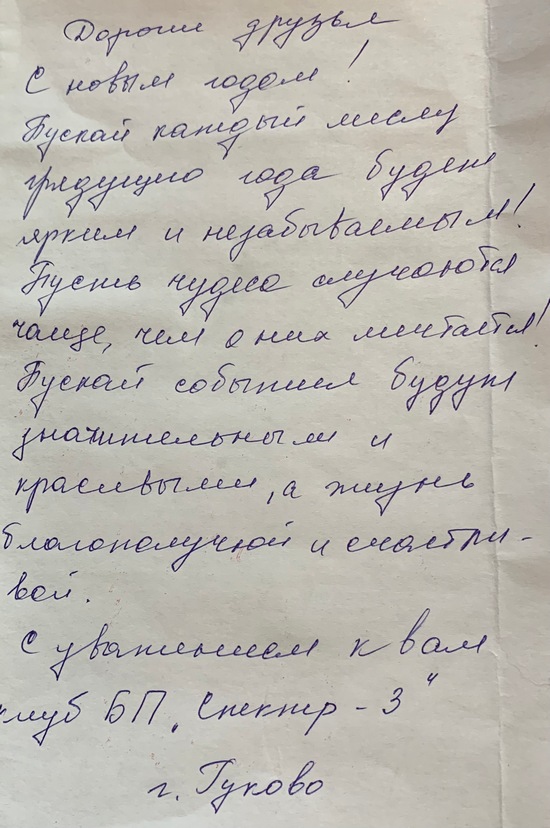 Дорогие друзья
С новым годом!
Пускай каждый месяц
грядущего года будет
ярким и незабываемым!
Пусть чудеса случаются
чаще, чем о них мечтается!
Пускай события будут
значительным и
красивыми, а жизнь
благополучной и счастли-
вой.
С уважением к вам
клуб БП „Спектр - 3"
г. Гуково